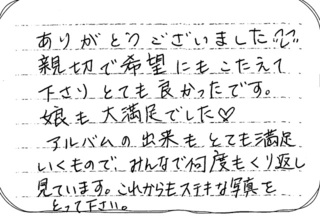 ありがとうございました
親切で希望にもこたえて
下さりとても良かったです。
娘も大満足でした♡
アルバムの出来もとても満足
いくもので、みんなで何度もくり返し
見ています。これからもステキな写真を
とって下さい。